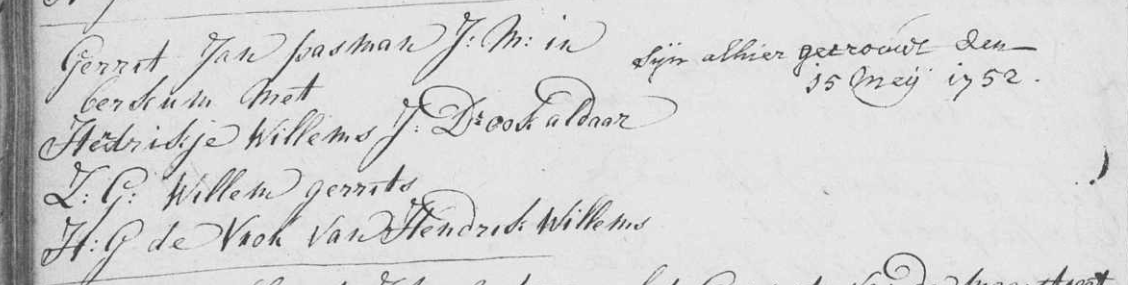 Gerrit Jan pasman J: M: in
berkum Met
Hendrikje Willems J: Dr ook aldaar
Z: G: Willem gerrits
H: G de Vrou van Hendrik Willems
sijn alhier getrouwt den
15 Meij 1752.